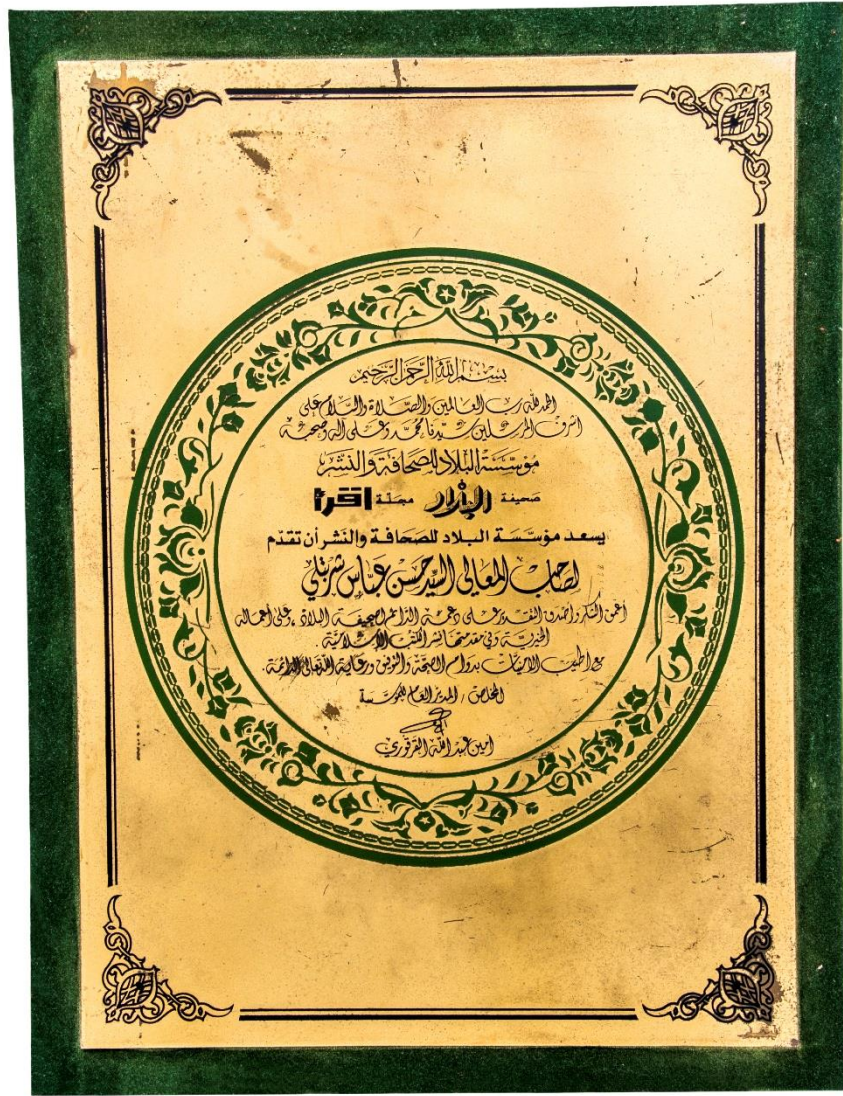 بسم الله الرحمن الرحيم
الحمد لله رب العالمين والصلاة والسلام على
أشرف المرسلين سيدنا محمد وعلى آله وصحبه
مؤسسة البلاد للصحافة والنشر
صحيفة البلاد مجلة اقرأ
يسعد مؤسسة البلاد للصحافة والنشر أن تقدم
لصاحب المعالي السيد حسن عباس شربتلي
أعمق الشكر وأصدق التقدير على دعمه الدائم لصحيفة البلاد، وعلى أعماله
الخيرية وفي مقدمتها نشر الكتب الإسلامية.
مع أطيب الأمنيات بدوام الصحة والتوفيق ورعاية الله تعالى الدائمة.
المخلص / المدير العام للمؤسسة
أمين عبد الله القرقوري